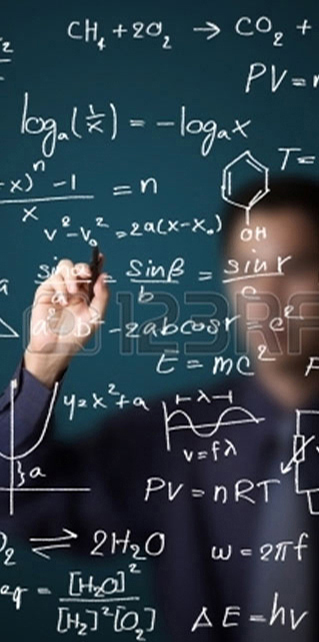 CH₄ + 2O₂ → CO₂ +
PV =
logₐ(1/x) = -logₐx
T =
x)ⁿ - 1 / x = n
v² - v₀² = 2a(x - x₀)
OH
sinα / a = sinβ / b = sin r / c
a² b² - 2abcosr = c²
E = mc²
y = x² + a
λ
v = fλ
a
PV = nRT
O₂ ⇌ 2H₂O
ω = 2πf
eq = [H₂O]² / [H₂]²[O₂]
ΔE = hv
123RF